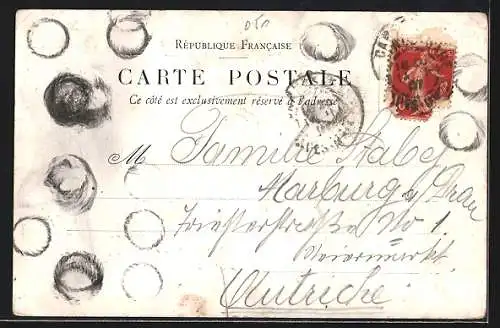 RÉPUBLIQUE FRANÇAISE
CARTE POSTALE
Ce côté est exclusivement réservé à l'adresse
M Familie
Marburg a/ Drau
Triesterstraße No 1.
Steiermarkt.
Autriche